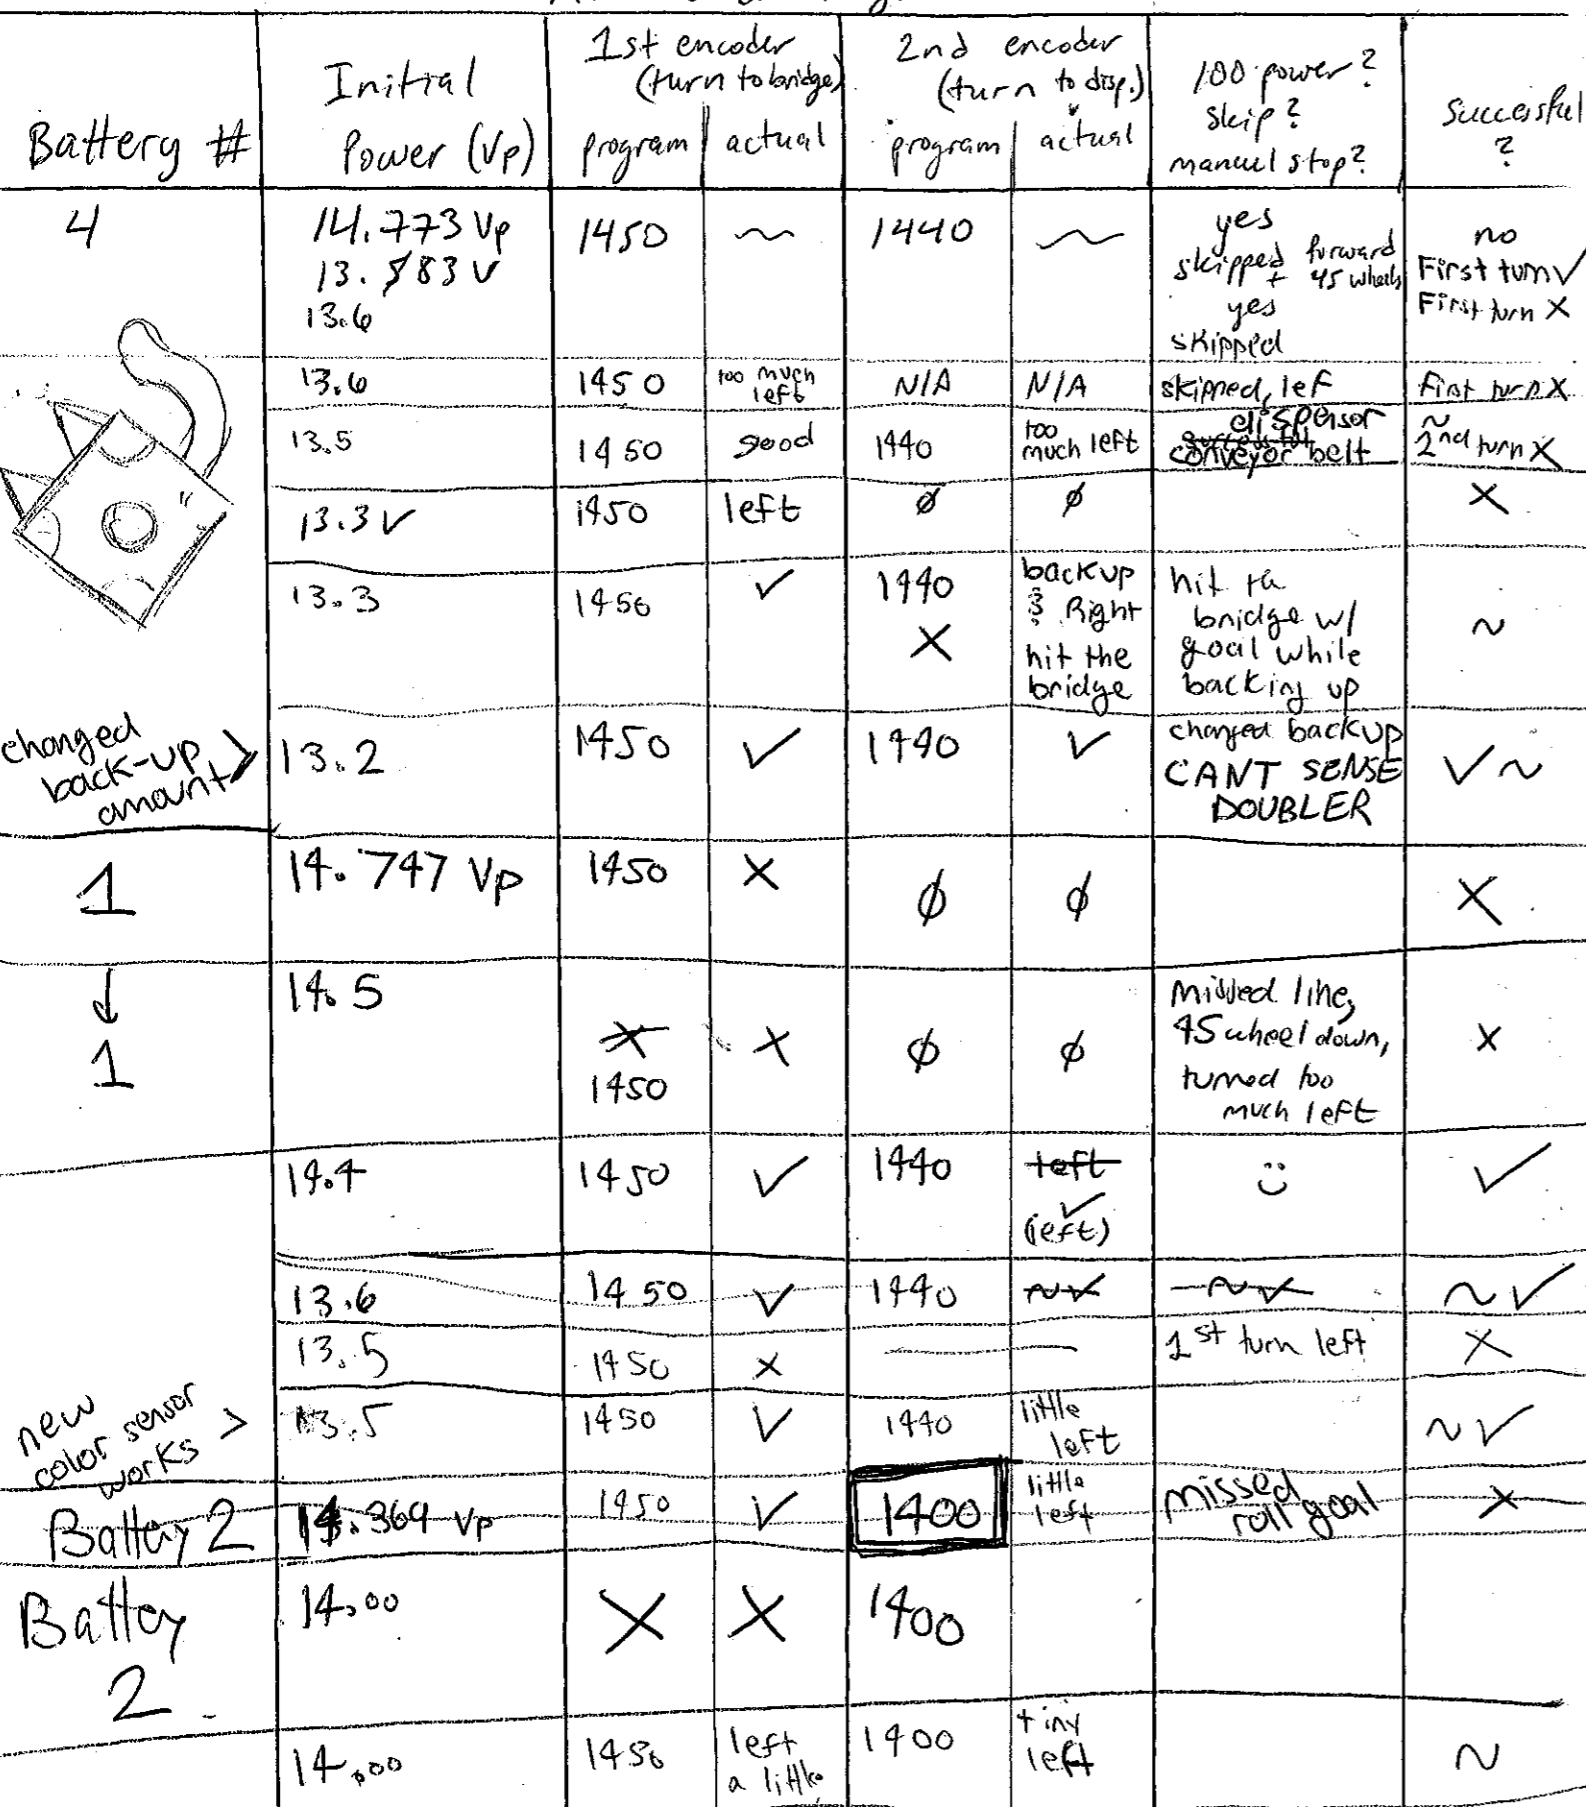 Battery #
Initial
Power (Vp)
1st encoder
(turn to bridge)
program | actual
2nd encoder
(turn to disp.)
program | actual
100 power?
skip?
manual stop?
Successful
?
4
14.773 Vp
13.583 V
13.6
1450
~
1440
~
yes
skipped forward
+ 45 wheels
yes
skipped
no
First turn ✓
First turn X
13.6
1450
too much
left
N/A
N/A
skipped, lef
First turn X
13.5
1450
good
1440
too
much left
dispensor
conveyor belt
~
2nd turn X
13.3 V
1450
left
ø
ø
X
13.3
1450
✓
1440
X
backup
& Right
hit the
bridge
hit the
bridge w/
goal while
backing up
~
changed
back-up
amount >
13.2
1450
✓
1440
✓
changed backup
CANT SENSE
DOUBLER
✓ ~
1
14.747 Vp
1450
X
ø
ø
X
↓
1
14.5
X
1450
X
ø
ø
missed line,
45 wheel down,
turned too
much left
X
14.4
1450
✓
1440
left
✓
(left)
:)
✓
13.6
1450
✓
1440
~✓
~✓
~ ✓
13.5
1450
X
1st turn left
X
new
color sensor
works >
13.5
1450
✓
1440
little
left
~ ✓
Battery 2
14.369 Vp
1450
✓
1400
little
left
missed
roll goal
X
Battery
2
14.00
X
X
1400
14.00
1450
left
a little
1400
tiny
left
~